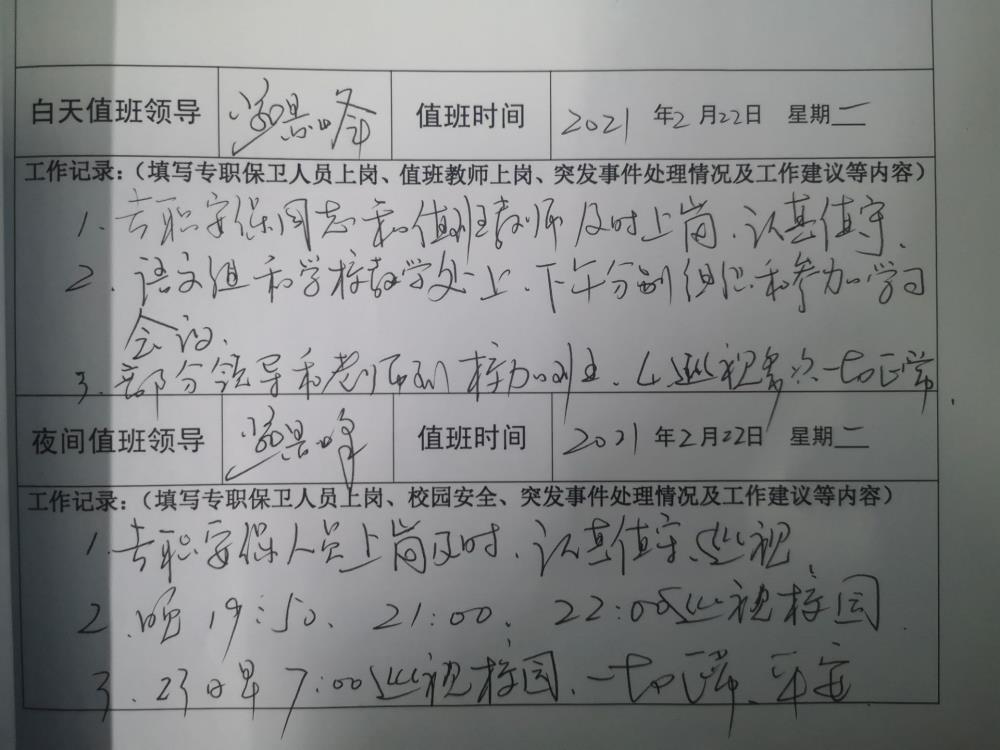 白天值班领导 值班时间 2021 年2月22日 星期二
工作记录：（填写专职保卫人员上岗、值班教师上岗、突发事件处理情况及工作建议等内容）
1. 专职安保同志和值班教师及时上岗、认真值守.
2. 语文组和学校教学处上、下午分别组织和参加学习
会议.
3. 部分领导和老师到校加班、巡视多次一切正常
夜间值班领导 值班时间 2021 年2月22日 星期二
工作记录：（填写专职保卫人员上岗、校园安全、突发事件处理情况及工作建议等内容）
1. 专职安保人员上岗及时、认真值守、巡视
2. 晚19:50、21:00、22:00巡视校园
3. 23日早7:00巡视校园、一切正常、平安